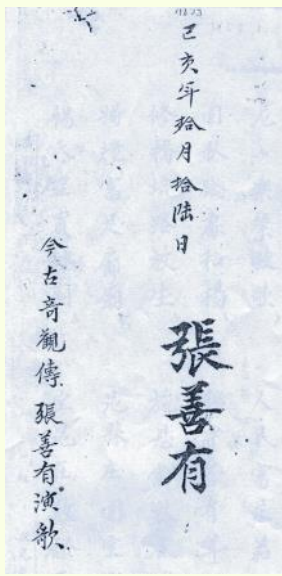 己亥年拾月拾陸日
張善有
今古奇觀傳 張善有演歌